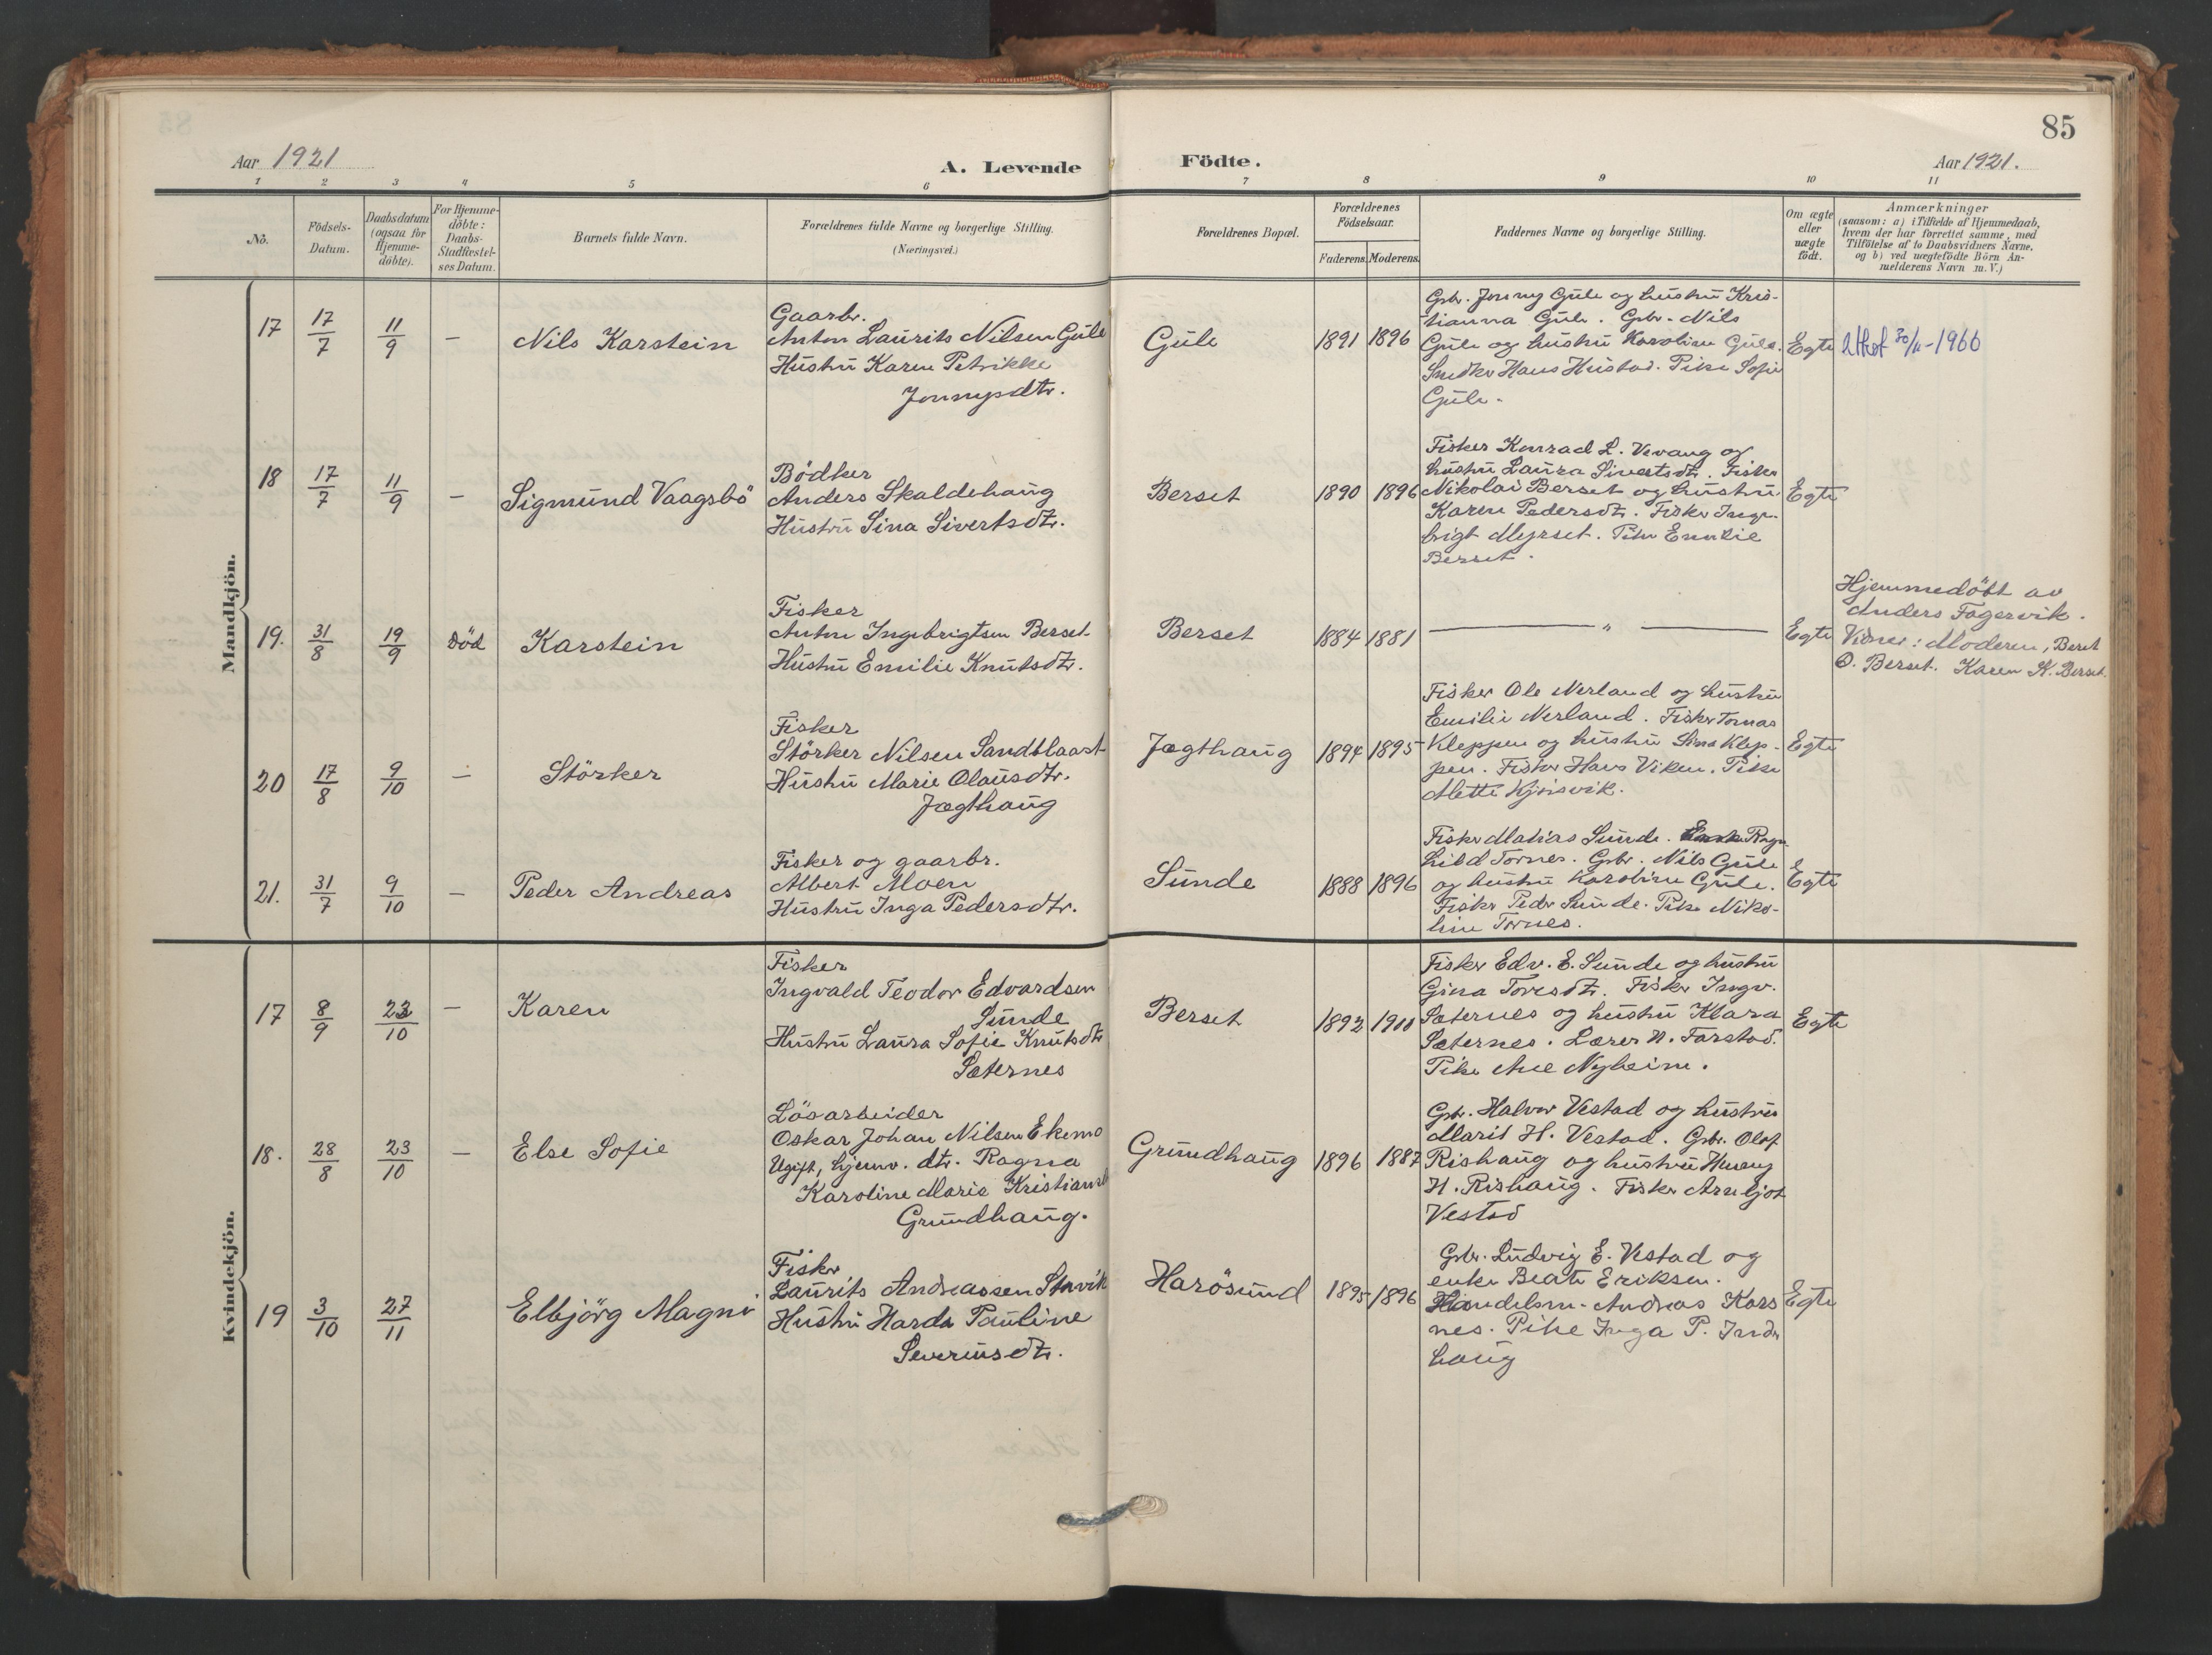 85
Aar 1921
A. Levende
Födte.
Aar 1921.
1 2 3 4 5 6 7 8 9 10 11
Nö.
Födsels-
Datum.
Daabsdatum
(ogsaa for
Hjemme-
döbte).
For Hjemme-
döbte:
Daabs-
Stadfæstel-
ses Datum.
Barnets fulde Navn.
Forældrenes fulde Navne og borgerlige Stilling.
(Næringsvei.)
Forældrenes Bopæl.
Forældrenes
Födselsaar.
Faderens. Moderens.
Faddernes Navne og borgerlige Stilling.
Om ægte
eller
uægte
födt.
Anmærkninger
(saasom: a) i Tilfælde af Hjemmedaab,
hvem der har forrettet samme, med
Tilföielse af to Daabsvidners Navne,
og b) ved uægtefödte Börn An-
melderens Navn m. V.)
Mandkjön.
17 17/7 11/9 — Nils Karstein
Gaarbr.
Anton Laurits Nilsen Gule
Hustru Karen Petrikke
Jonnysdtr.
Gule 1891 1896
Gbr. Jonny Gule og hustru Kris-
tianna Gule. Gbr. Nils
Gule og hustru Karoline Gule.
Snedker Hans Hustad. Pike Sofie
Gule.
Egte
Uthof 30/11-1966
18 17/7 11/9 — Sigmund Vaagsbö
Bödker
Anders Skaldehaug
Hustru Sina Sivertsdtr.
Berset 1890 1896
Fisker Konrad L. Vevang og
hustru Laura Sivertsdtr. Fisker
Nikolai Berset og hustru
Karen Pedersdtr. Fisker Inge-
brigt Myrset. Pike Emilie
Berset.
Egte
19. 31/8 19/9 Död Karstein
Fisker
Anton Ingebrigtsen Berset.
Hustru Emilie Knutsdtr.
Berset 1884 1881
— " —
Egte
Hjemmedöbt av
Anders Fagervik.
Vidner: Moderen, Beret
O. Berset. Karen K. Berset.
20 17/8 9/10 — Störker
Fisker
Störker Nilsen Sandblaast
Hustru Marie Olausdtr.
Jægthaug
Jægthaug 1894 1895
Fisker Ole Nerland og hustru
Emilie Nerland. Fisker Tomas
Kleppen og hustru Sina Klep-
pen. Fisker Hans Viken. Pike
Mette Kjörsvik.
Egte
21. 31/7 9/10 — Peder Andreas
Fisker og gaarbr.
Albert Moen
Hustru Inga Pedersdtr.
Sunde 1888 1896
Fisker Matias Sunde. Ragn-
hild Tornes. Gbr. Nils Gule
og hustru Karoline Gule.
Fisker Peder Sunde. Pike Niko-
line Tornes.
Egte
Kvindekjön.
17 8/9 23/10 — Karen
Fisker
Ingvald Teodor Edvardsen
Sunde
Hustru Laura Sofie Knutsdtr
Sæternes
Berset 1892 1900
Fisker Edv. E. Sunde og hustru
Gina Toresdtr. Fisker Ingv.
Sæternes og hustru Klara
Sæternes. Lærer N. Farstad.
Pike Ane Nyheim.
Egte
18. 28/8 23/10 — Else Sofie
Lösarbeider
Oskar Johan Nilsen Ekemo
Ugift, hjemv. dtr. Ragna
Karoline Marie Kristiansd
Grundhaug.
Grundhaug 1896 1887
Gbr. Halvor Vestad og hustru
Marit H. Vestad. Gbr. Olaf
Rishaug og hustru
H. Rishaug. Fisker Arneljot
Vestad
19 3/10 27/11 Elbjörg Magni
Fisker
Laurits Andreassen Stavik
Hustru Harda Pauline
Severinsdtr.
Harösund 1895 1896
Gbr. Ludvig E. Vestad og
enke Beate Eriksen.
Handelsm. Andreas Kors
nes. Pike Inga P. Indr
haug
Egte